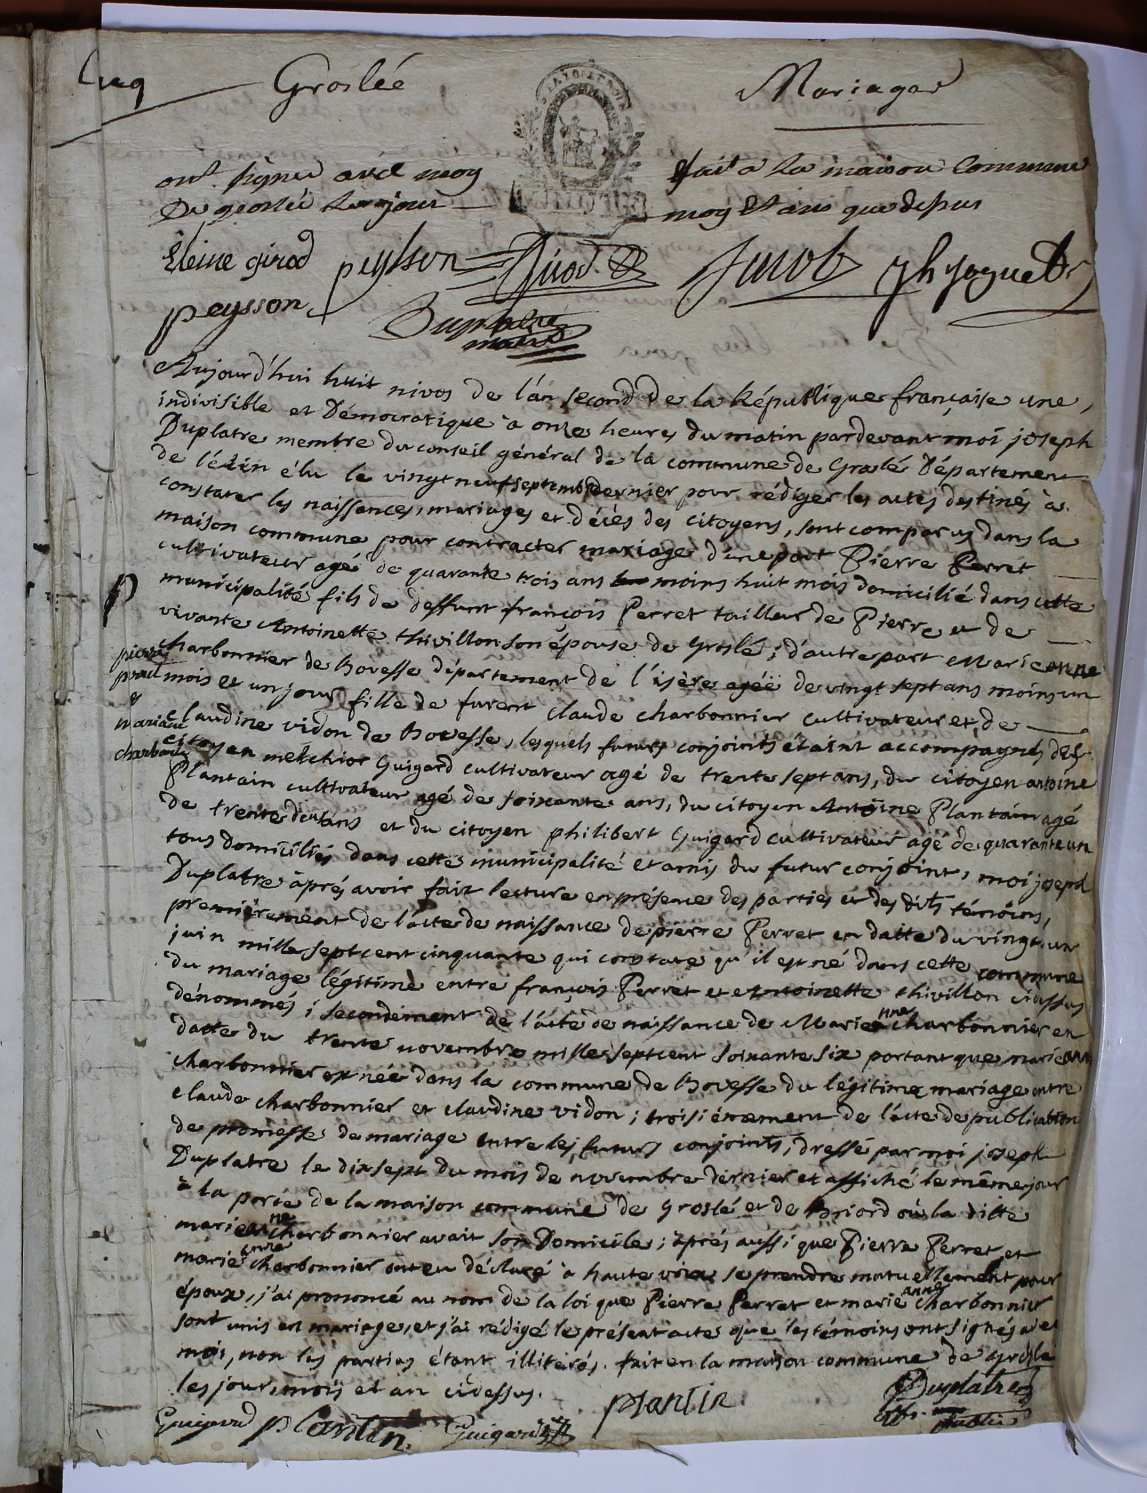 Cinq Groslée Mariages
ont signé avec moy fait a la maison Commune
De groslée Les jour moy et an que dessus
Eleine girod peysson Girod Jacob jh joguet
peysson Duplatre
maire
Aujourd'hui huit nivos de l'an second de la République française une,
indivisible et Démocratique à onze heures du matin pardevant moi joseph
Duplatre membre du conseil général de la commune de Groslé Département
de l'ein élu le vingt neuf septembre dernier pour rédiger les actes destinés à
constater les naissances, mariages et décès des citoyens, sont comparus dans la
maison commune pour contracter mariage d'une part Pierre Perret
cultivateur agé de quarante trois ans moins huit mois domicilié dans cette
municipalité fils de deffunt françois Perret tailleur de Pierre et de
vivante Antoinette thivillon son épouse de Groslé ; d'autre part Marie anne
charbonnier de Bovesse département de l'isère agée de vingt sept ans moins un
mois et un jour fille de furent claude charbonnier cultivateur et de
claudine vidon de Bovesse, lesquels futurs conjoints étaint accompagnés des
citoyen melchior Guigard cultivateur agé de trente sept ans, du citoyen antoine
Plantain cultivateur agé de soixante ans, du citoyen Antoine Plantain agé
de trente deux ans et du citoyen philibert Guigard cultivateur agé de quarante un
tous domiciliés dans cette municipalité et amis du futur conjoint, moi joseph
Duplatre àprés avoir fait lecture en présence des parties et des dits témoins,
premièrement de l'acte de naissance de pierre Perret en datte du vingt un
juin mille sept cent cinquante qui constate qu'il est né dans cette commune
du mariage légitime entre françois Perret et Antoinette thivillon cidessus
dénommés ; secondement de l'acte de naissance de Marie anne charbonnier en
datte du trente novembre mille sept cent soixante six portant que marie ann
charbonnier est née dans la commune de Bovesse du légitime mariage entre
claude charbonnier et claudine vidon ; troisiémement de l'acte de publication
de promesse de mariage entre les futurs conjoints, dressé par moi joseph
Duplatre le dix sept du mois de novembre dernier et affiché le même jour
à la porte de la maison commune de Groslé et de Briord où la ditte
marie anne charbonnier avait son Domicile ; àprés aussi que Pierre Perret et
marie anne charbonnier ont eu déclaré à haute voix se prendre mutuellement pour
époux, j'ai prononcé au nom de la loi que Pierre Perret et marie anne charbonnier
sont unis en mariage, et j'ai rédigé le présent acte que les témoins ont signés avec
moi, non les parties étant illiterés. fait en la maison commune de groslé
les jour, mois et an cidessus.
P
pierre
perret
et
mariane
charbonier
Guigard plantin Guigard plantin Duplatre
off. public